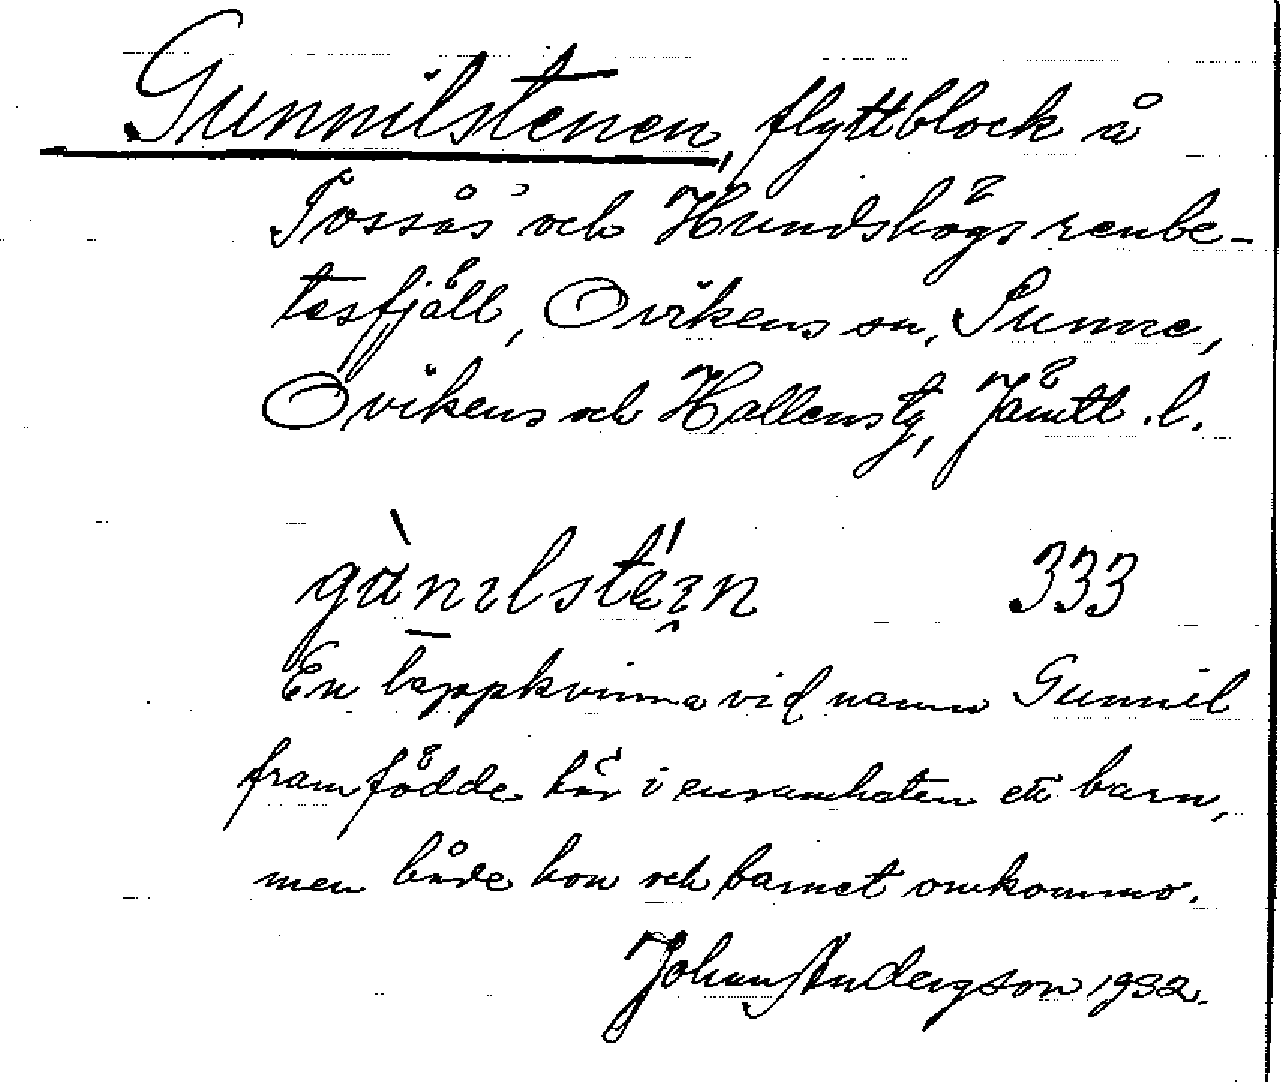 Gunnilstenen, flyttblock å
Tossås och Hundshögs renbe-
tesfjäll, Ovikens sn, Sunne,
Ovikens och Hallens tg, Jämtl. l.
gùnılstéı̯n 333
En lappkvinna vid namn Gunnil
framfödde här i ensamheten ett barn,
men både hon och barnet omkommo.
Johan Andersson 1932.